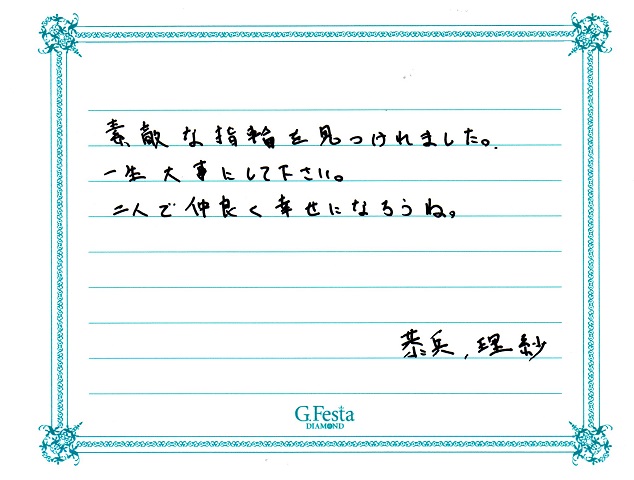 素敵な指輪を見つけれました。
一生大事にして下さい。
二人で仲良く幸せになろうね。
恭兵,理紗
G.Festa
DIAMOND